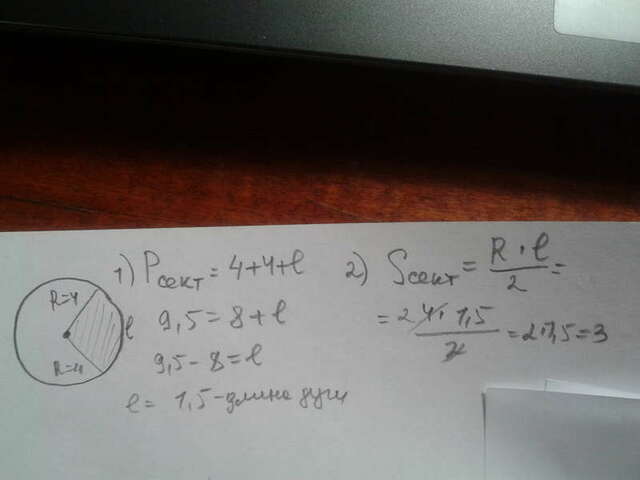 R=4
R=4
l
1) Pсект=4+4+l
9,5=8+l
9,5-8=l
l= 1,5-длина дуги
2) Sсект=R·l/2=
=2 4·1,5/2=2·1,5=3